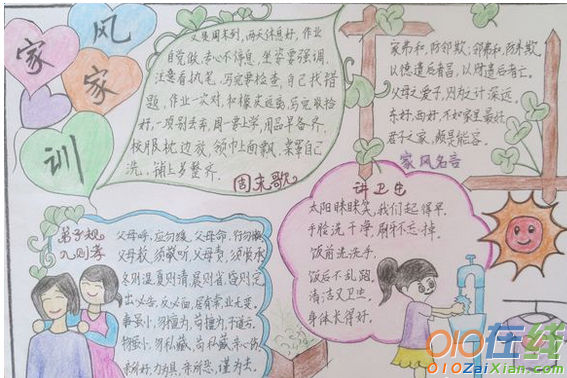 家风
家训
又是周末到，两天休息好，作业
自觉做，专心不得急，坐姿要强调，
注意看执笔，写完要检查，自己找错
题，作业一次对，和橡皮远离，写完收拾
好，一项别丢弃，周一要上学，用品早备齐，
校服枕边放，领巾上面飘，亲罩自己
洗，铺上
周末歌
家弟和，防邻欺，邻弟和，防弟欺。
以德遗后者昌，以财遗后者亡。
父母之爱子，则为之计深远。
东好，西好，不如家里最好。
君子之家，
家风名言
讲卫生
太阳眯眯笑，我们起得早。
手脸洗干净，刷牙不忘掉。
饭前洗洗手，
饭后不乱跑。
清洁又卫生，
身体长得好。
弟子规
入则孝
父母呼，应勿缓，父母命，行勿懒
父母教，须敬听，父母责，须顺承
冬则温，夏则清，晨则省，昏则定
出必告，反必面，居有常，业无变。
事虽小，勿擅为，苟擅为，子道亏。
物虽小，勿私藏，苟私藏，亲心伤。
亲所好，力为具，亲所恶，谨为去。
010在线
010ZaiXian.com